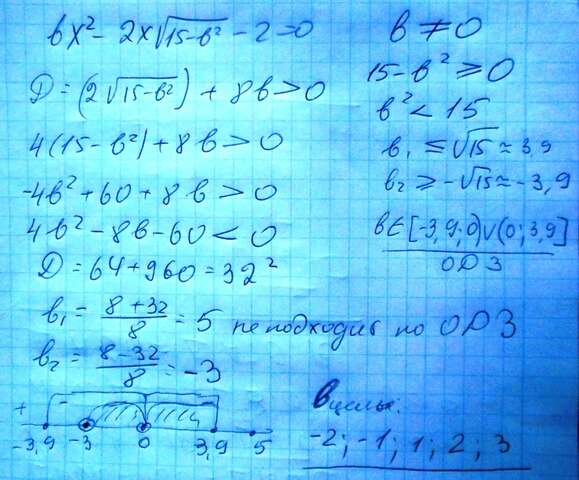 bx² - 2x√15-b² - 2 = 0
D = (2√15-b²) + 8b > 0
4(15 - b²) + 8b > 0
-4b² + 60 + 8b > 0
4b² - 8b - 60 < 0
D = 64 + 960 = 32²
b₁ = 8+32/8 = 5 не подходит по ОДЗ
b₂ = 8-32/8 = -3
b ≠ 0
15 - b² ⩾ 0
b² < 15
b₁ ⩽ √15 ≈ 3,9
b₂ ⩾ -√15 ≈ -3,9
b∈[-3,9;0)∪(0;3,9]
ОДЗ
+ -
-3,9 -3 0 3,9 5
b целых.
-2; -1; 1; 2; 3